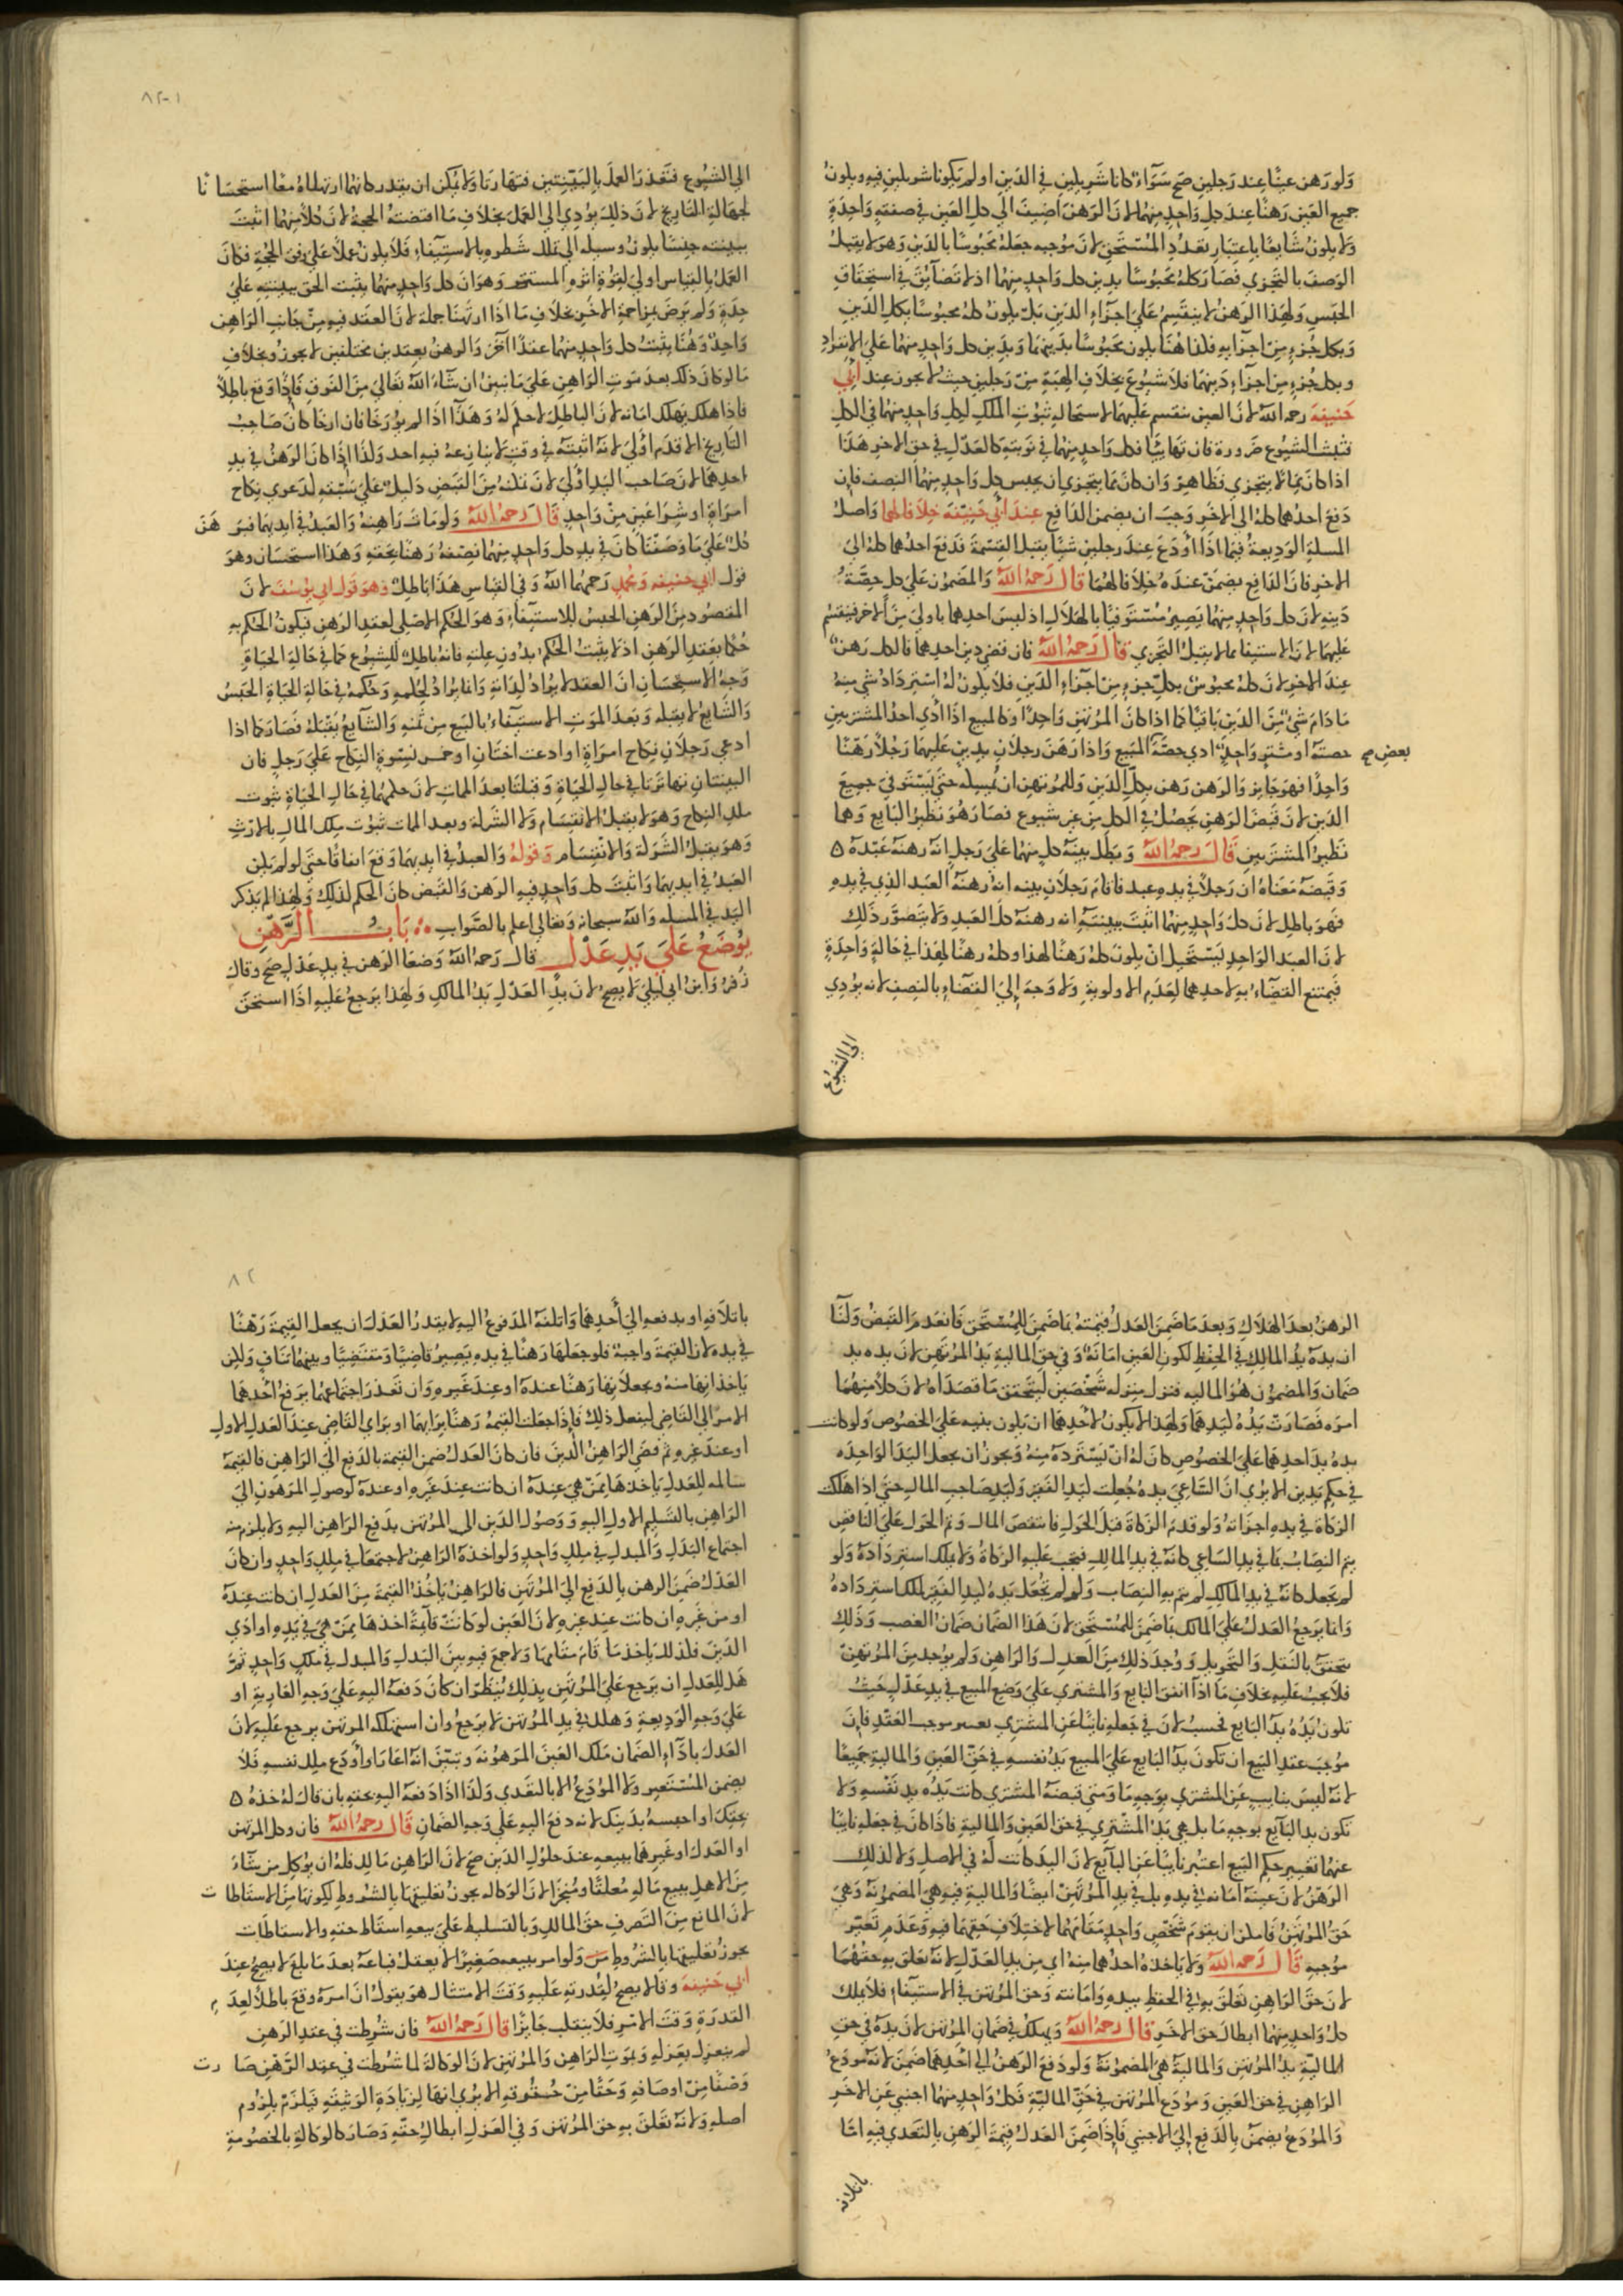 ولو رهن عينا عند رجلين صح سواء كانا شريكين في الدين او لم يكونا شريكين فيه ويكون
جميع العين رهنا عند كل واحد منهما لان الرهن اضيف الي كل العين في صفقة واحدة
ولا يكون شايعا باعتبار تعدد المستحق لان موجبه جعله محبوسا بالدين وهو لا يقبل
الوصف بالتجزي فصار كله محبوسا بدين كل واحد منهما اذ لا تضايق في استحقاق
الحبس ولهذا الرهن لا ينقسم علي اجزاء الدين بل يكون كله محبوسا بكل الدين
وبكل جزء من اجزايه فلذا هنا يكون محبوسا بدينهما وبدين كل واحد منهما علي الانفراد
وبكل جزء من اجزاء دينهما فلا شيوع بخلاف الهبة من رجلين حيث لا يجوز عند ابي
حنيفة رحمه الله لان العين تنقسم عليهما لاستحالة ثبوت الملك لكل واحد منهما في الكل
فيثبت الشيوع ضرورة فان تهايئا فكل واحد منهما في نوبته كالعدل في حق الاخر هذا
اذا كان مما لا يتجزي فظاهر وان كان مما يتجزي ان يحبس كل واحد منهما النصف فان
دفع احدهما كله الي الاخر وجب ان يضمن الدافع عند ابي حنيفة خلافا لهما واصل
المسلة الوديعة فيما اذا اودع عند رجلين شيئا يقبل القسمة فدفع احدهما كله الي
الاخر فان الدافع يضمن عنده خلافا لهما قال رحمه الله والمضمون علي كل حصة
دينه لان كل واحد منهما يصير مستوفيا بالهلاك اذ ليس احدهما باولي من الاخر فينقسم
عليهما لان الاستيفا مما لا يقبل التجزي قال رحمه الله فان قضي دين احدهما فالكل رهن
عند الاخر لان كله محبوس بكل جزء من اجزاء الدين فلا يكون له استرداد شي منه
ما دام شي من الدين باقيا كما اذا كان المرتهن واحدا وكالمبيع اذا ادي احد المشتريين
حصته او مشتر واحد ادي حصة المبيع واذا رهن رجلان بدين عليهما رجلا رهنا
بعض صح
واحدا فهو جايز والرهن رهن بكل الدين وللمرتهن ان يمسكه حتي يستوفي جميع
الدين لان قبض الرهن يحصل في الكل من غير شيوع فصار هو نظير البايع وهما
نظير المشتريين قال رحمه الله وبطل بينة كل منهما علي رجل انه رهنه عبده
وقبضه معناه ان رجلا في يده عبد فاقام رجلان بينه انه رهنه العبد الذي في يده
فهو باطل لان كل واحد منهما اثبت ببينته انه رهنه كل العبد ولا يتصور ذلك
لان العبد الواحد يستحيل ان يكون كله رهنا لهذا وكله رهنا لهذا في حالة واحدة
فيمتنع القضاء به لاحدهما لعدم الاولوية ولا وجه الي القضاء بالنصف لانه يؤدي
الي الشيوع
الي الشيوع فتعذر العمل بالبينتين فتهاترتا ولا يمكن ان يقدر كانهما ارتهناه معا استحسانا
لجهالة التاريخ لان ذلك يؤدي الي العمل بخلاف ما اقتضته الحجة لان كلا منهما اثبت
ببينته حبسا يكون وسيلة الي تملك شطره بالاستيفاء فلا يكون عملا علي وفق الحجة فكان
العمل بالقياس اولي لقوة اثره المستتر وهو ان كل واحد منهما يثبت الحق ببينته علي
حدة ولم يرض بمزاحمة الاخر بخلاف ما اذا ارتهنا جملة لان العقد فيه من جانب الراهن
واحد وهنا يثبت كل واحد منهما عقدا اخر والرهن بعقدين مختلفين لا يجوز وبخلاف
ما لو كان ذلك بعد موت الراهن علي ما نبين ان شاء الله تعالي من الفرق فاذا وقع باطلا
فاذا هلك يهلك امانه لان الباطل لا حكم له وهذا اذا لم يورخا فان ارخا كان صاحب
التاريخ الاقدم اولي لانه اثبته في وقت لا ينازعه فيه احد وكذا اذا كان الرهن في يد
احدهما لان صاحب اليد اولي لان تمكنه من القبض دليل علي سبقه كدعوي نكاح
امراة او شرا عين من واحد قال رحمه الله ولو مات راهنه والعبد في ايديهما فبرهن
كل علي ما وصفنا كان في يد كل واحد منهما نصفه رهنا بحقه وهذا استحسان وهو
قول ابي حنيفه ومحمد رحمهما الله وفي القياس هذا باطل وهو قول ابي يوسف لان
المقصود من الرهن الحبس للاستيفاء وهو الحكم الاصلي لعقد الرهن فيكون الحكم به
حكما بعقد الرهن اذ لا يثبت الحكم بدون علته فانه باطل للشيوع كما في حالة الحياة
وجه الاستحسان ان العقد لا يراد لذاته وانما يراد لحكمه وحكمه في حالة الحياة الحبس
والشايع لا يقبله وبعد الموت الاستيفاء بالبيع من ثمنه والشايع يقبله فصار كما اذا
ادعي رجلان نكاح امراة او ادعت اختان او خمس نسوة النكاح علي رجل فان
البينتان تهاترتا في حال الحياة وقبلتا بعد الممات لان حكمهما في حال الحياة ثبوت
ملك النكاح وهو لا يقبل الانقسام ولا الشركة وبعد الممات ثبوت ملك المال بالارث
وهو يقبل الشركة والانقسام وقوله والعبد في ايديهما وقع اتفاقا حتي لو لم يكن
العبد في ايديهما واثبت كل واحد فيه الرهن والقبض كان الحكم لذلك ولهذا لم يذكر
اليد في المسلة والله سبحانه وتعالي اعلم بالصواب باب الرهن
يوضع علي يد عدل قال رحمه الله وضعا الرهن في يد عدل صح وقال
زفر وابن ابي ليلي لا يصح لان يد العدل يد المالك ولهذا يرجع عليه اذا استحق
٨٢
الرهن بعد الهلاك وبعد ما ضمن العدل قيمته بما ضمن للمستحق فانعدم القبض ولنا
ان يده يد المالك في الحفظ لكون العين امانة وفي حق المالية يد المرتهن لان يده يد
ضمان والمضمون هو المالية فنزل منزلة شخصين ليتحقق ما قصداه لان كلا منهما
امره فصارت يده كيدهما ولهذا لا يكون لاحدهما ان يكون بنيه علي الخصوص ولو كانت
يده يد احدهما علي الخصوص كان له ان يسترده منه ويجوز ان يجعل اليد الواحده
في حكم يدين الا يري ان الساعي يده جعلت كيد الفقير وكيد صاحب المال حتي اذا هلكت
الزكاة في يده اجزاته ولو قدم الزكاة قبل الحول فانتقص المال وتم الحول علي الناقص
يتم النصاب بما في يد الساعي كانه في يد المالك فتجب عليه الزكاة ولا يملك استرداده ولو
لم يجعل كانه في يد المالك لم يتم به النصاب ولو لم تجعل يده كيد الفقير لملك استرداده
وانما يرجع العدل علي المالك بما ضمن للمستحق لان هذا الضمان ضمان الغصب وذلك
يتحقق بالنقل والتحويل ووجد ذلك من العدل والراهن ولم يوجد من المرتهن
فلا يجب عليه بخلاف ما اذا اتفق البايع والمشتري علي وضع المبيع في يد عدل حيث
تكون يده يد البايع فحسب لان في جعله نايبا عن المشتري تغيير موجب العقد فان
موجب عقد البيع ان تكون يد البايع علي المبيع يد نفسه في حق العين والمالية جميعا
لانه ليس بنايب عن المشتري بوجه ما ومتي قبضه المشتري كانت يده يد نفسه ولا
تكون يد البايع بوجه ما بل هي يد المشتري في حق العين والمالية فاذا كان في جعله نايبا
عنهما تغيير حكم البيع اعتبر نايبا عن البايع لان اليد كانت له في الاصل ولا كذلك
الرهن لان عينه امانه في يده بل في يد المرتهن ايضا والمالية فيه هي المضمونة وهي
حق المرتهن فامكن ان يقوم شخص واحد مقامهما لاختلاف حقهما فيه وعدم تغير
موجبه قال رحمه الله ولا ياخذه احدهما منه اي من يد العدل لانه تعلق به حقهما
لان حق الراهن تعلق به في الحفظ بيده وامانته وحق المرتهن في الاستيفاء فلا يملك
كل واحد منهما ابطال حق الاخر قال رحمه الله ويهلك في ضمان المرتهن لان يده في حق
المالية يد المرتهن والمالية هي المضمونة ولو دفع الرهن الي احدهما ضمن لانه مودع
الراهن في حق العين ومودع المرتهن في حق المالية فكل واحد منهما اجنبي عن الاخر
والمودع يضمن بالدفع الي الاجنبي فاذا ضمن العدل قيمة الرهن بالتعدي فيه اما
باتلافه
٨٢
باتلافه او بدفعه الي احدهما واتلفه المدفوع اليه لا يقدر العدل ان يجعل القيمة رهنا
في يده لان القيمة واجبة فلو جعلها رهنا في يده يصير قاضيا ومقتضيا وبينهما تناف ولكن
ياخذانها منه ويجعلانها رهنا عنده او عند غيره وان تعذر اجتماعهما يرفع احدهما
الامر الي القاضي ليفعل ذلك فاذا جعلت القيمة رهنا برايهما او براي القاضي عند العدل الاول
او عند غيره ثم قضي الراهن الدين فان كان العدل ضمن القيمة بالدفع الي الراهن فالقيمة
سالمه للعدل ياخذها ممن هي عنده ان كانت عند غيره او عنده لوصول المرهون الي
الراهن بالتسليم الاول اليه ووصول الدين الي المرتهن بدفع الراهن اليه ولا يلزم منه
اجتماع البدل والمبدل في ملك واحد ولو اخذه الراهن لاجتمعا في ملك واحد وان كان
العدل ضمن الرهن بالدفع الي المرتهن فالراهن ياخذ القيمة من العدل ان كانت عنده
او من غيره ان كانت عند غيره لان العين لو كانت قايمة اخذها ممن هي في يده او ادي
الدين فلذلك ياخذ ما قام مقامها ولا جمع فيه بين البدل والمبدل في ملك واحد ثم
هل للعدل ان يرجع علي المرتهن بذلك ينظر ان كان دفعه اليه علي وجه العارية او
علي وجه الوديعة وهلك في يد المرتهن لا يرجع وان استهلكه المرتهن يرجع عليه لان
العدل باداء الضمان ملك العين المرهونة وتبين انه اعار او اودع ملك نفسه فلا
يضمن المستعير ولا المودع الا بالتعدي وكذا اذا دفعه اليه بحقه بان قال له خذه
بحقك او احبسه بدينك لانه دفع اليه علي وجه الضمان قال رحمه الله فان وكل المرتهن
او العدل او غيرهما ببيعه عند حلول الدين صح لان الراهن مالك فله ان يوكل من شاء
من الاهل ببيع ماله معلقا ومنجزا لان الوكالة يجوز تعليقها بالشروط لكونها من الاسقاطات
لان المانع من التصرف حق المالك وبالتسليط علي بيعه اسقاط حقه والاسقاطات
يجوز تعليقها بالشروط ولو امر ببيعه صغيرا لا يعقل فباعه بعد ما بلغ لا يصح عند
ابي حنيفة وقالا يصح لقدرته عليه وقت الامتثال هو يقول ان امره وقع باطلا لعدم
القدرة وقت الامر فلا ينقلب جايزا قال رحمه الله فان شرطت في عقد الرهن
لم ينعزل بعزله وبموت الراهن والمرتهن لان الوكالة لما شرطت في عقد الرهن صارت
وصفا من اوصافه وحقا من حقوقه الا يري انها لزيادة الوثيقة فيلزم بلزوم
اصله ولانه تعلق به حق المرتهن وفي العزل ابطال حقه وصار كالوكالة بالخصومة